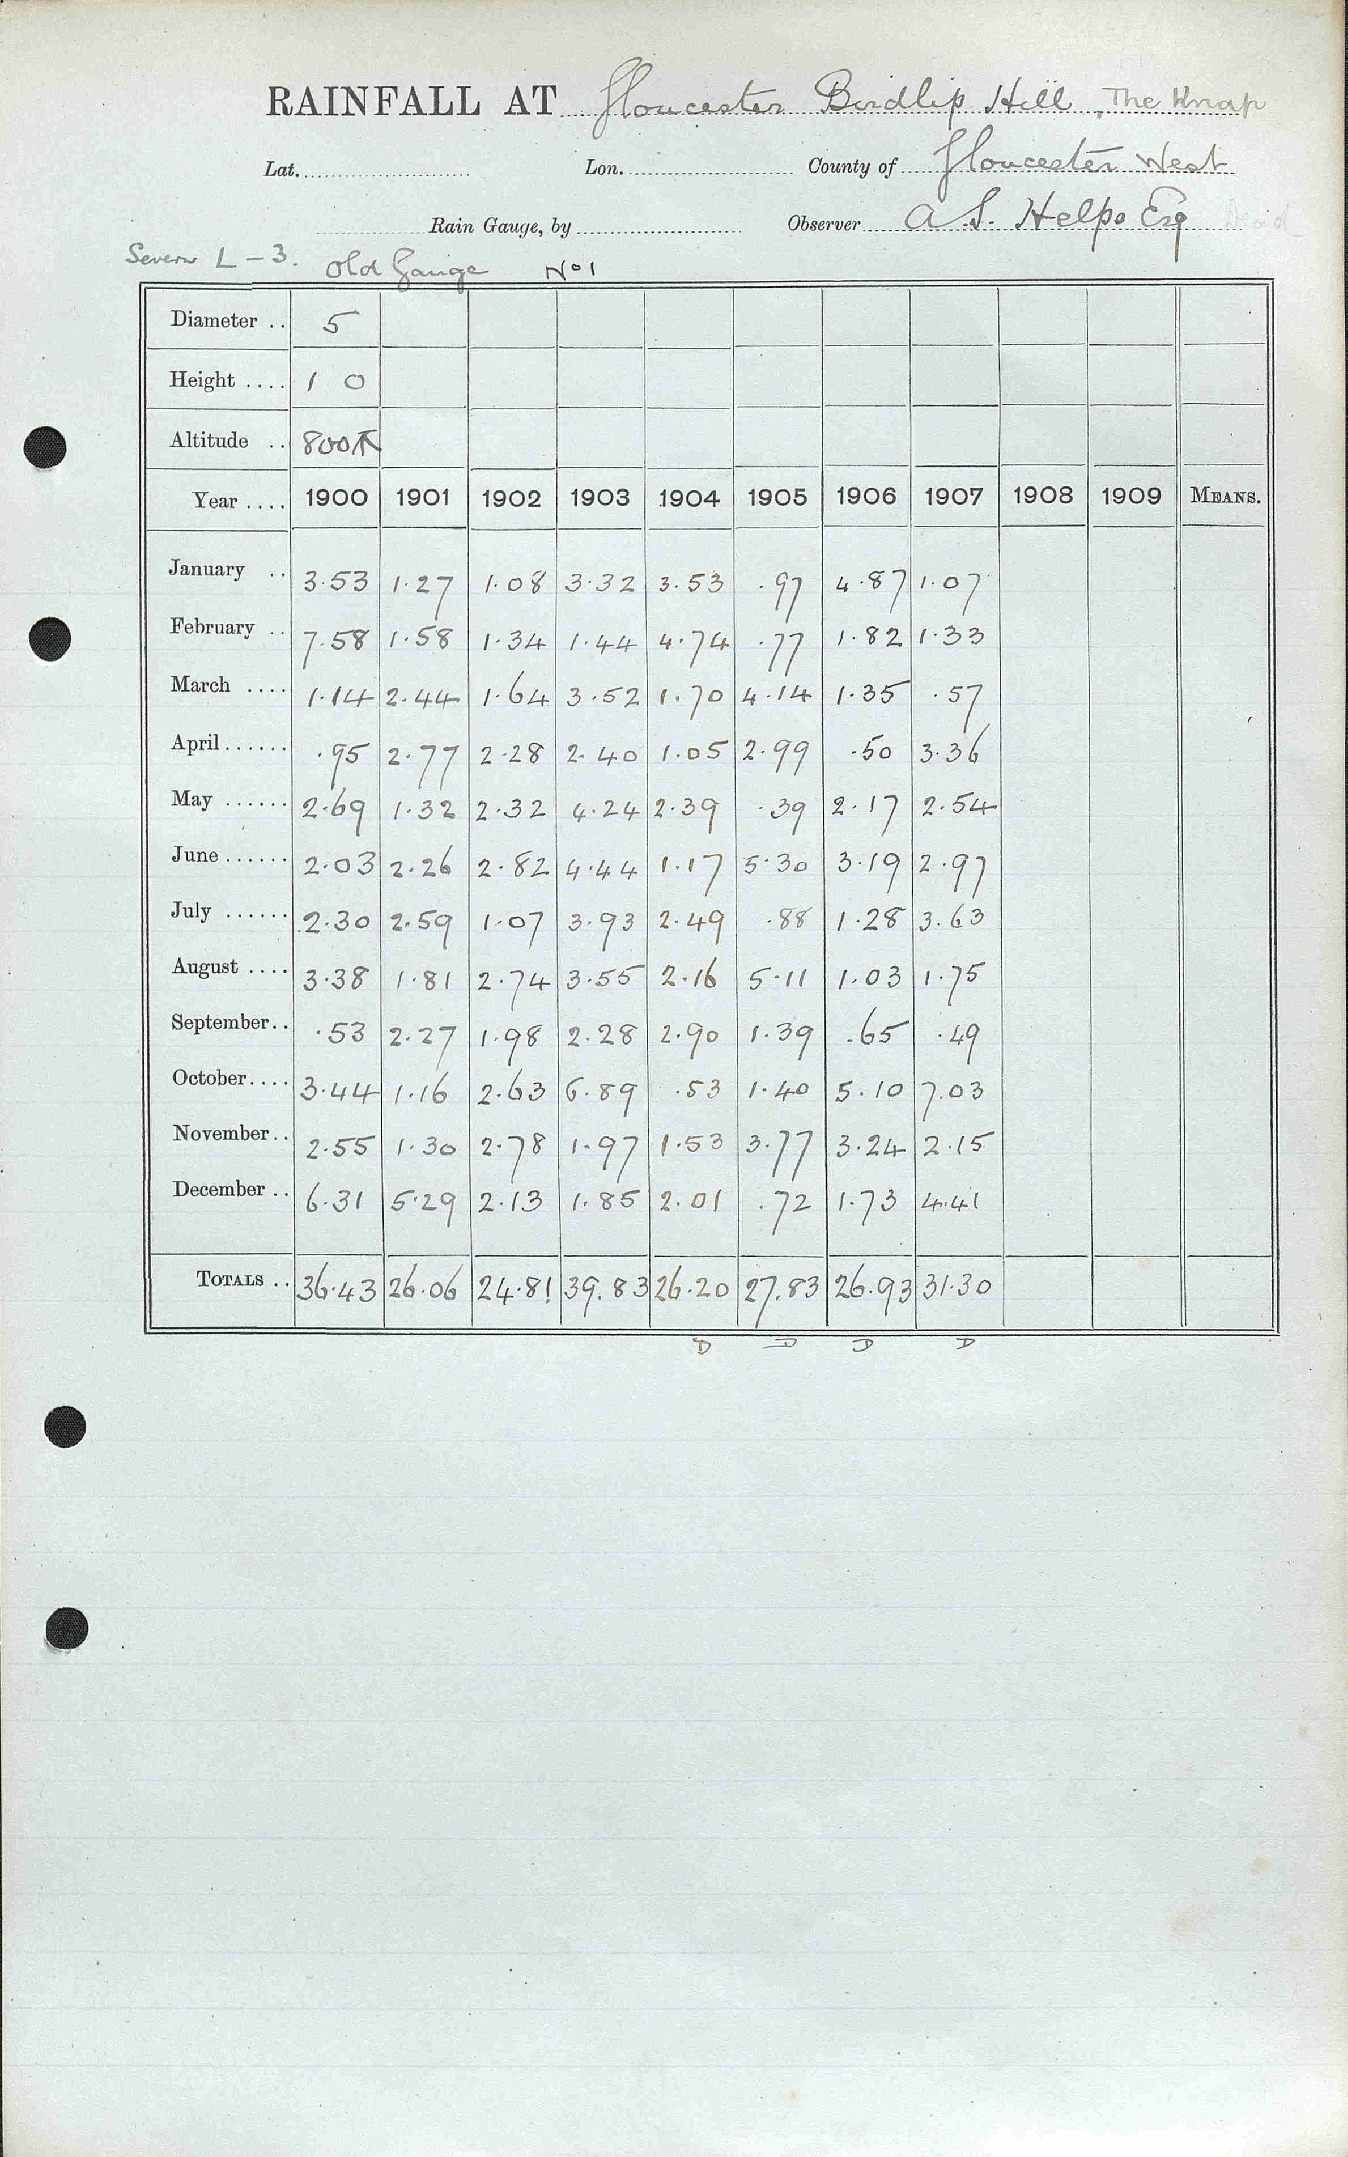 RAINFALL AT Gloucester Birdlip Hill, The Knap
Lat. Lon. County of Gloucester West
Rain Gauge, by Observer A. S. Helps Esq
Severn L - 3. Old Gauge No 1
Diameter .. 5
Height .... 1 0
Altitude .. 800ft
Year .... 1900 1901 1902 1903 1904 1905 1906 1907 1908 1909 MEANS.
January .. 3.53 1.27 1.08 3.32 3.53 .97 4.87 1.07
February .. 7.58 1.58 1.34 1.44 4.74 .77 1.82 1.33
March .... 1.14 2.44 1.64 3.52 1.70 4.14 1.35 .57
April...... .95 2.77 2.28 2.40 1.05 2.99 .50 3.36
May ...... 2.69 1.32 2.32 4.24 2.39 .39 2.17 2.54
June...... 2.03 2.26 2.82 4.44 1.17 5.30 3.19 2.97
July ...... 2.30 2.59 1.07 3.93 2.49 .88 1.28 3.63
August .... 3.38 1.81 2.74 3.55 2.16 5.11 1.03 1.75
September.. .53 2.27 1.98 2.28 2.90 1.39 .65 .49
October.... 3.44 1.16 2.63 6.89 .53 1.40 5.10 7.03
November.. 2.55 1.30 2.78 1.97 1.53 3.77 3.24 2.15
December .. 6.31 5.29 2.13 1.85 2.01 .72 1.73 4.41
TOTALS .. 36.43 26.06 24.81 39.83 26.20 27.83 26.93 31.30
D D D D